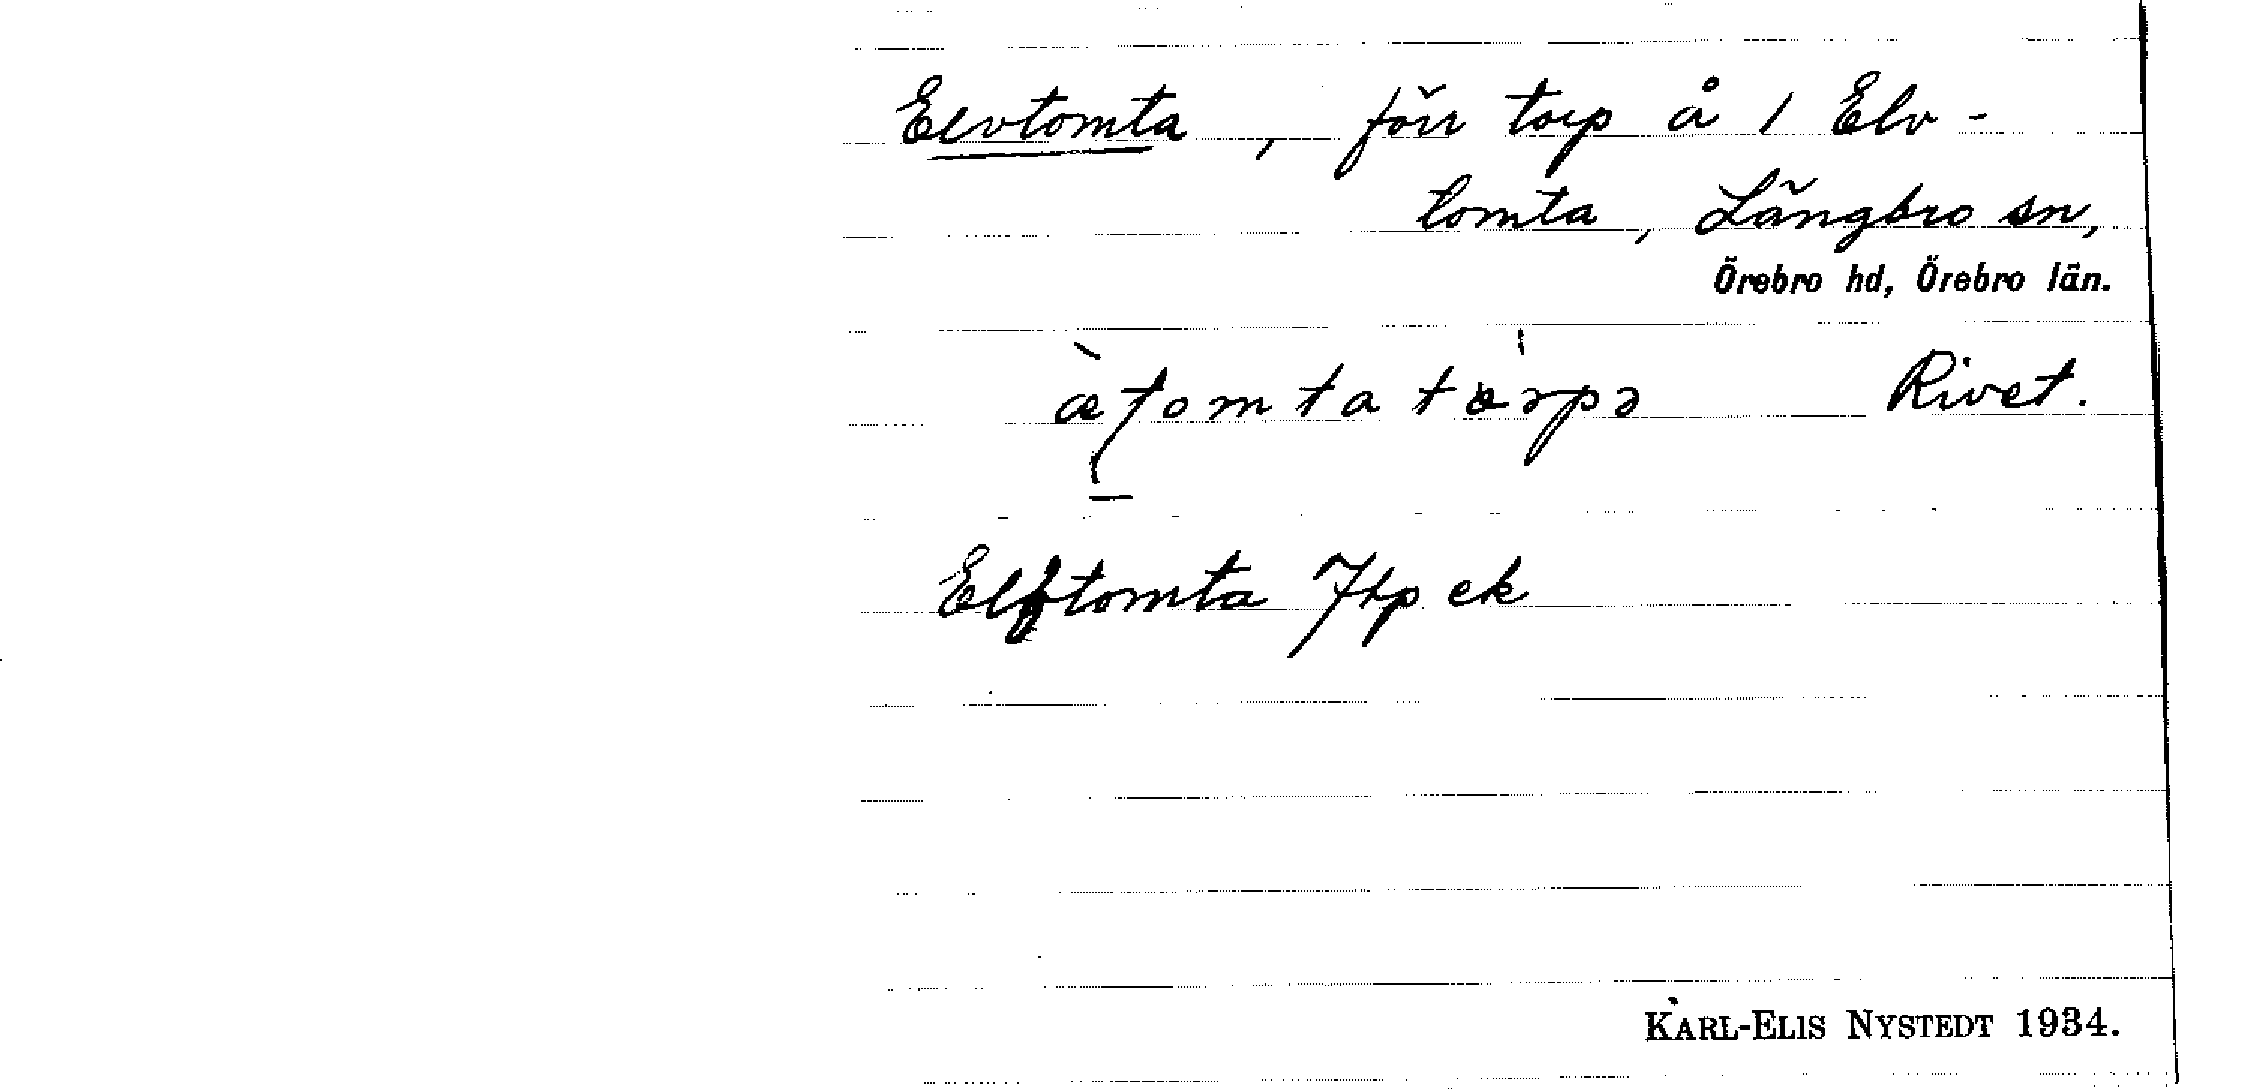 Elvtomta, förr torp å 1 Elv-
tomta, Längbro sn,
Örebro hd, Örebro län.
Rivet.
Elftomta Jtp ek
KARL-ELIS NYSTEDT 1934.